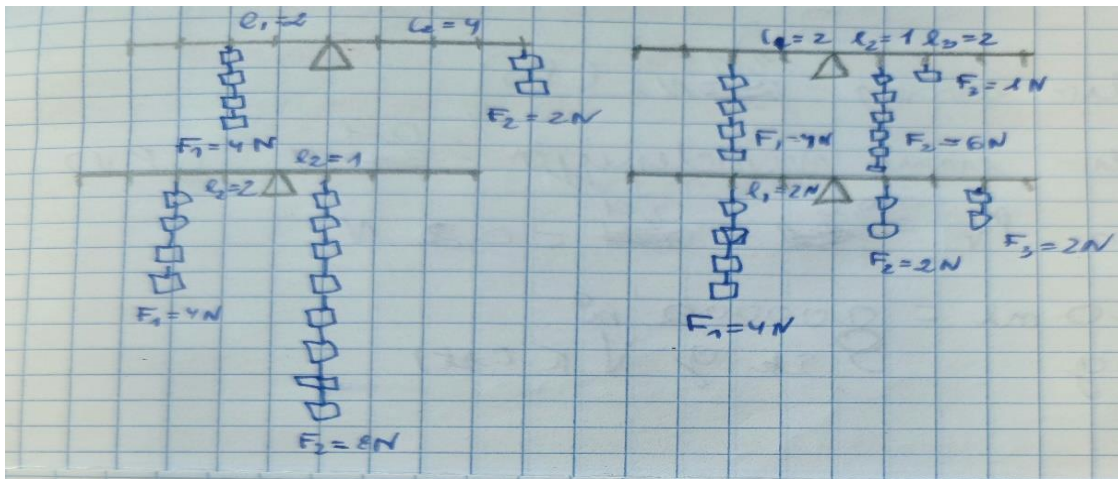 l₁=2 l₂=4
F₁=4N
F₂=2N
l₂=2 l₂=1
F₁=4N
F₂=8N
l₁=2 l₂=1 l₃=2
F₁=4N F₂=6N F₃=1N
l₁=2N
F₁=4N
F₂=2N
F₃=2N